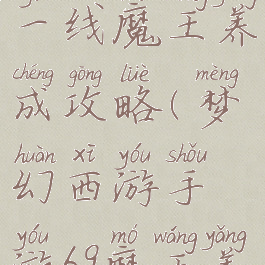 一线魔王养
chéng gōng lüè mèng
成攻略(梦
huàn xī yóu shǒu
幻西游手
yóu mó wáng yǎng
游69魔王养